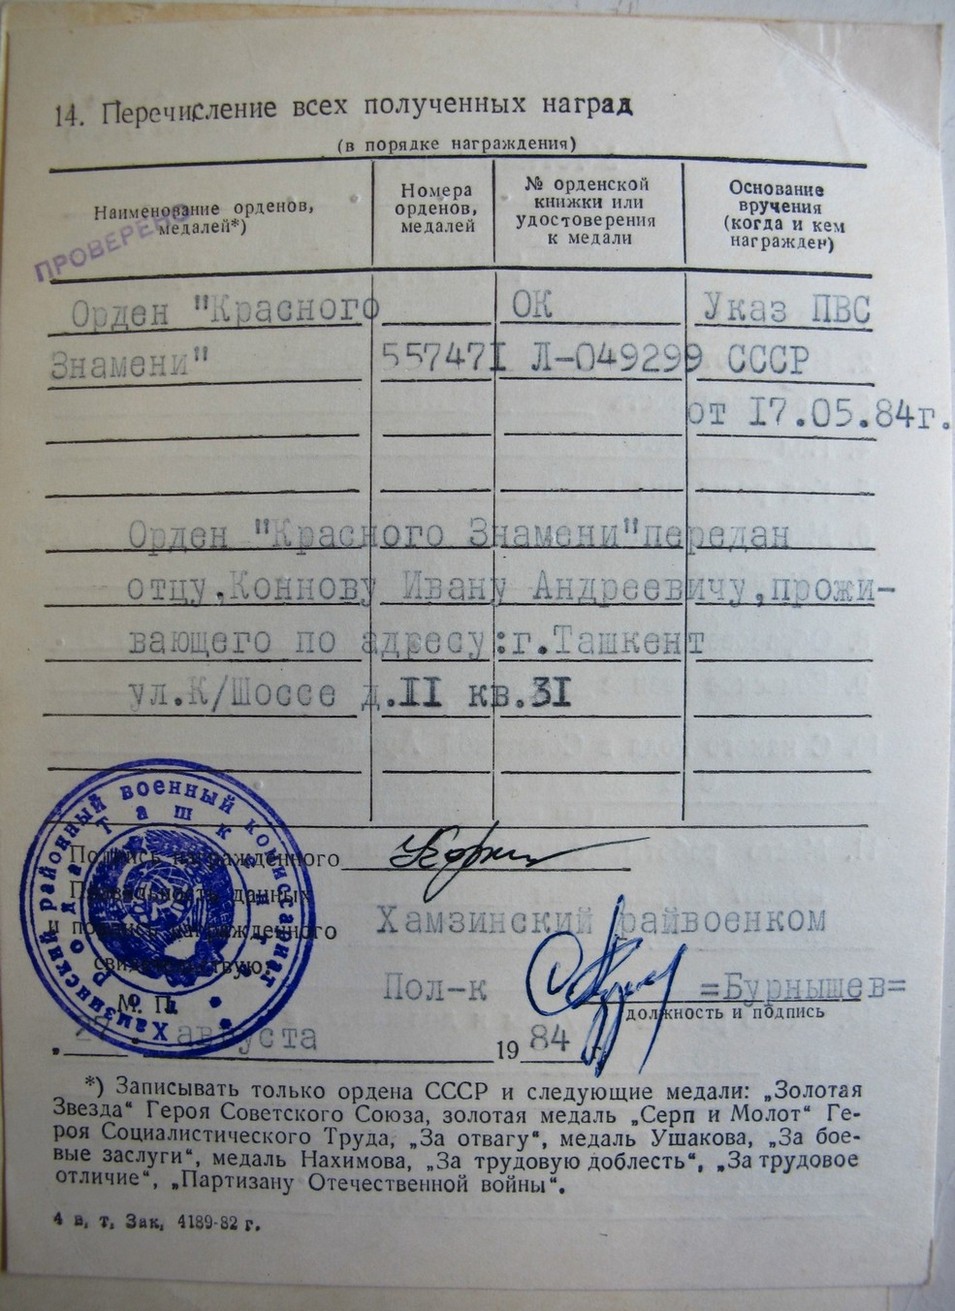 14. Перечисление всех полученных наград
(в порядке награждения)
Наименование орденов, медалей*)
Номера орденов, медалей
№ орденской книжки или удостоверения к медали
Основание вручения (когда и кем награжден)
ПРОВЕРЕНО
Орден "Красного ОК Указ ПВС
Знамени" 557471 Л-049299 СССР
от 17.05.84г.
Орден "Красного Знамени"передан
отцу,Коннову Ивану Андреевичу,прожи-
вающего по адресу:г.Ташкент
ул.К/Шоссе д.II кв.3I
Подпись награжденного
Правильность данных
и подписи награжденного
свидетельствую:
Хамзинский райвоенком
Пол-к =Бурнышев=
должность и подпись
М. П.
августа 1984 г.
Хамзинский районный военный комиссариат
*) Записывать только ордена СССР и следующие медали: „Золотая
Звезда“ Героя Советского Союза, золотая медаль „Серп и Молот“ Ге-
роя Социалистического Труда, „За отвагу“, медаль Ушакова, „За бое-
вые заслуги“, медаль Нахимова, „За трудовую доблесть“, „За трудовое
отличие“, „Партизану Отечественной войны“.
4 в, т, Зак, 4189-82 г.